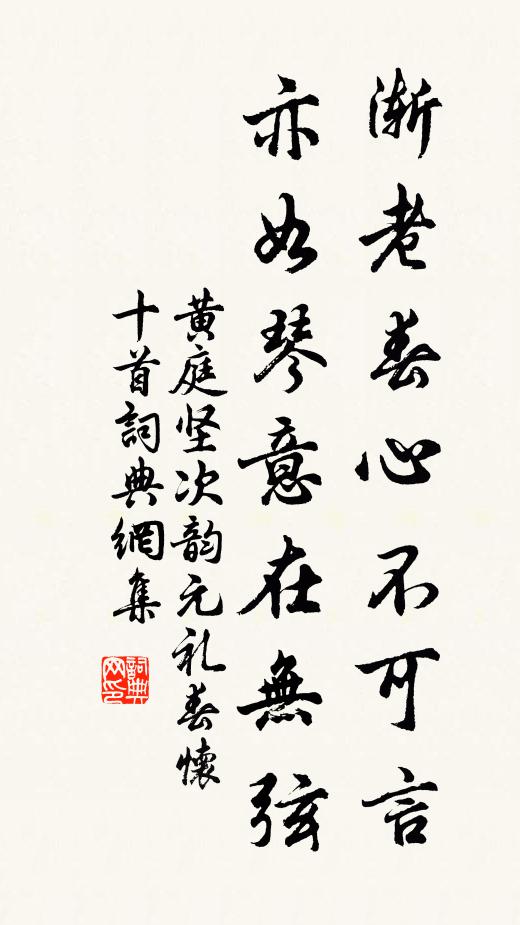 渐老春心不可言
亦如琴意在無弦
黄庭坚次韵元礼春懷
十首詞典網集
詞典网印